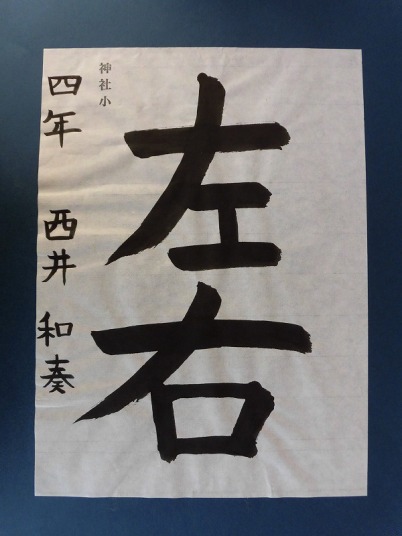 左右
神社小
四年 西井 和奏